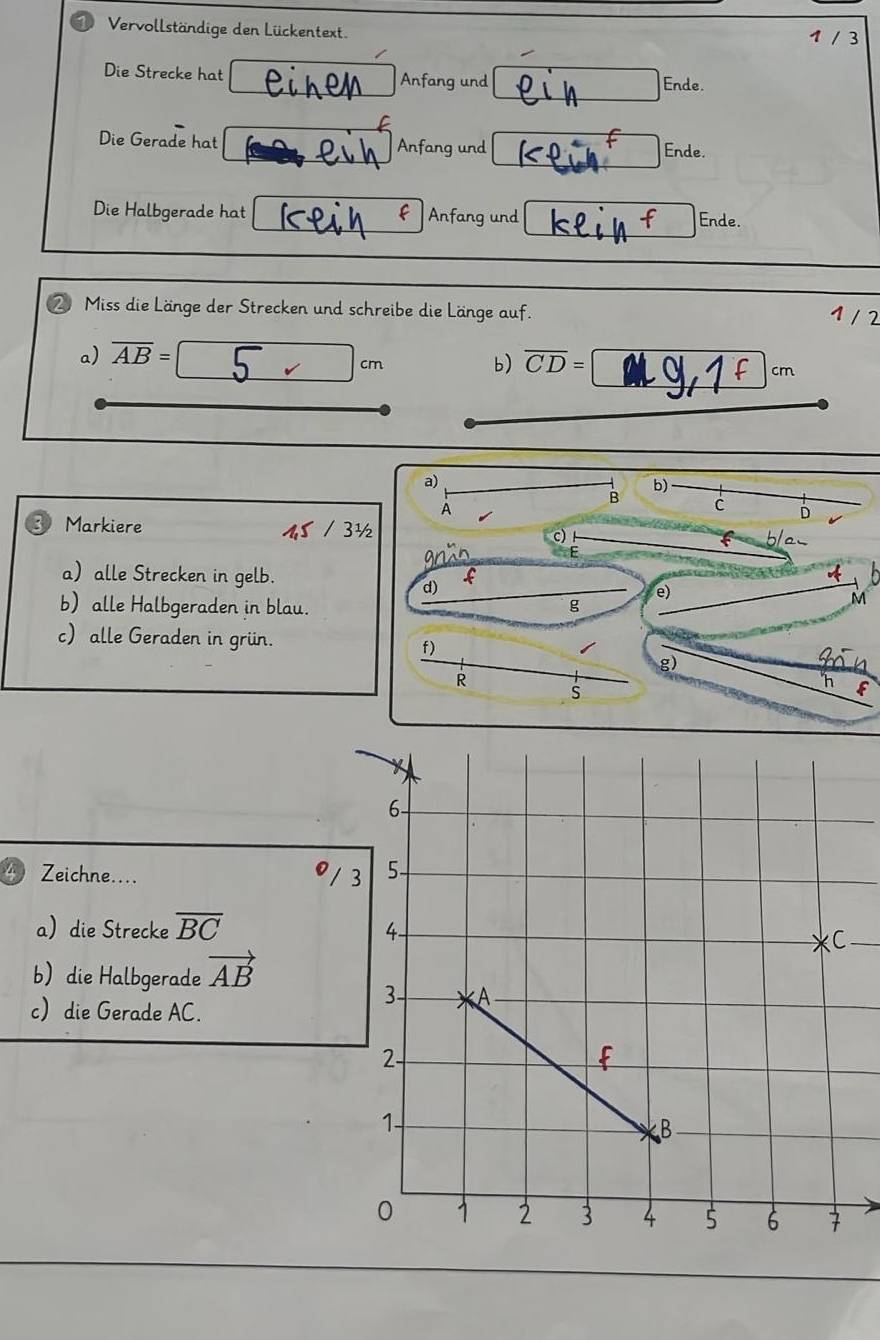 1 Vervollständige den Lückentext. 1 / 3
Die Strecke hat einen Anfang und ein Ende.
Die Gerade hat ein f Anfang und kein f Ende.
Die Halbgerade hat kein f Anfang und kein f Ende.
2 Miss die Länge der Strecken und schreibe die Länge auf. 1 / 2
a) AB = 5 cm b) CD = 9,1 f cm
3 Markiere 1,5 / 3½
a) alle Strecken in gelb.
b) alle Halbgeraden in blau.
c) alle Geraden in grün.
a) A B b) C D
c) E f blau
grün
d) f g e) f M b
f) R S g) grün h f
4 Zeichne.... 0 / 3
a) die Strecke BC
b) die Halbgerade AB
c) die Gerade AC.
y
6
5
4 C
3 A
2 f
1 B
0 1 2 3 4 5 6 7